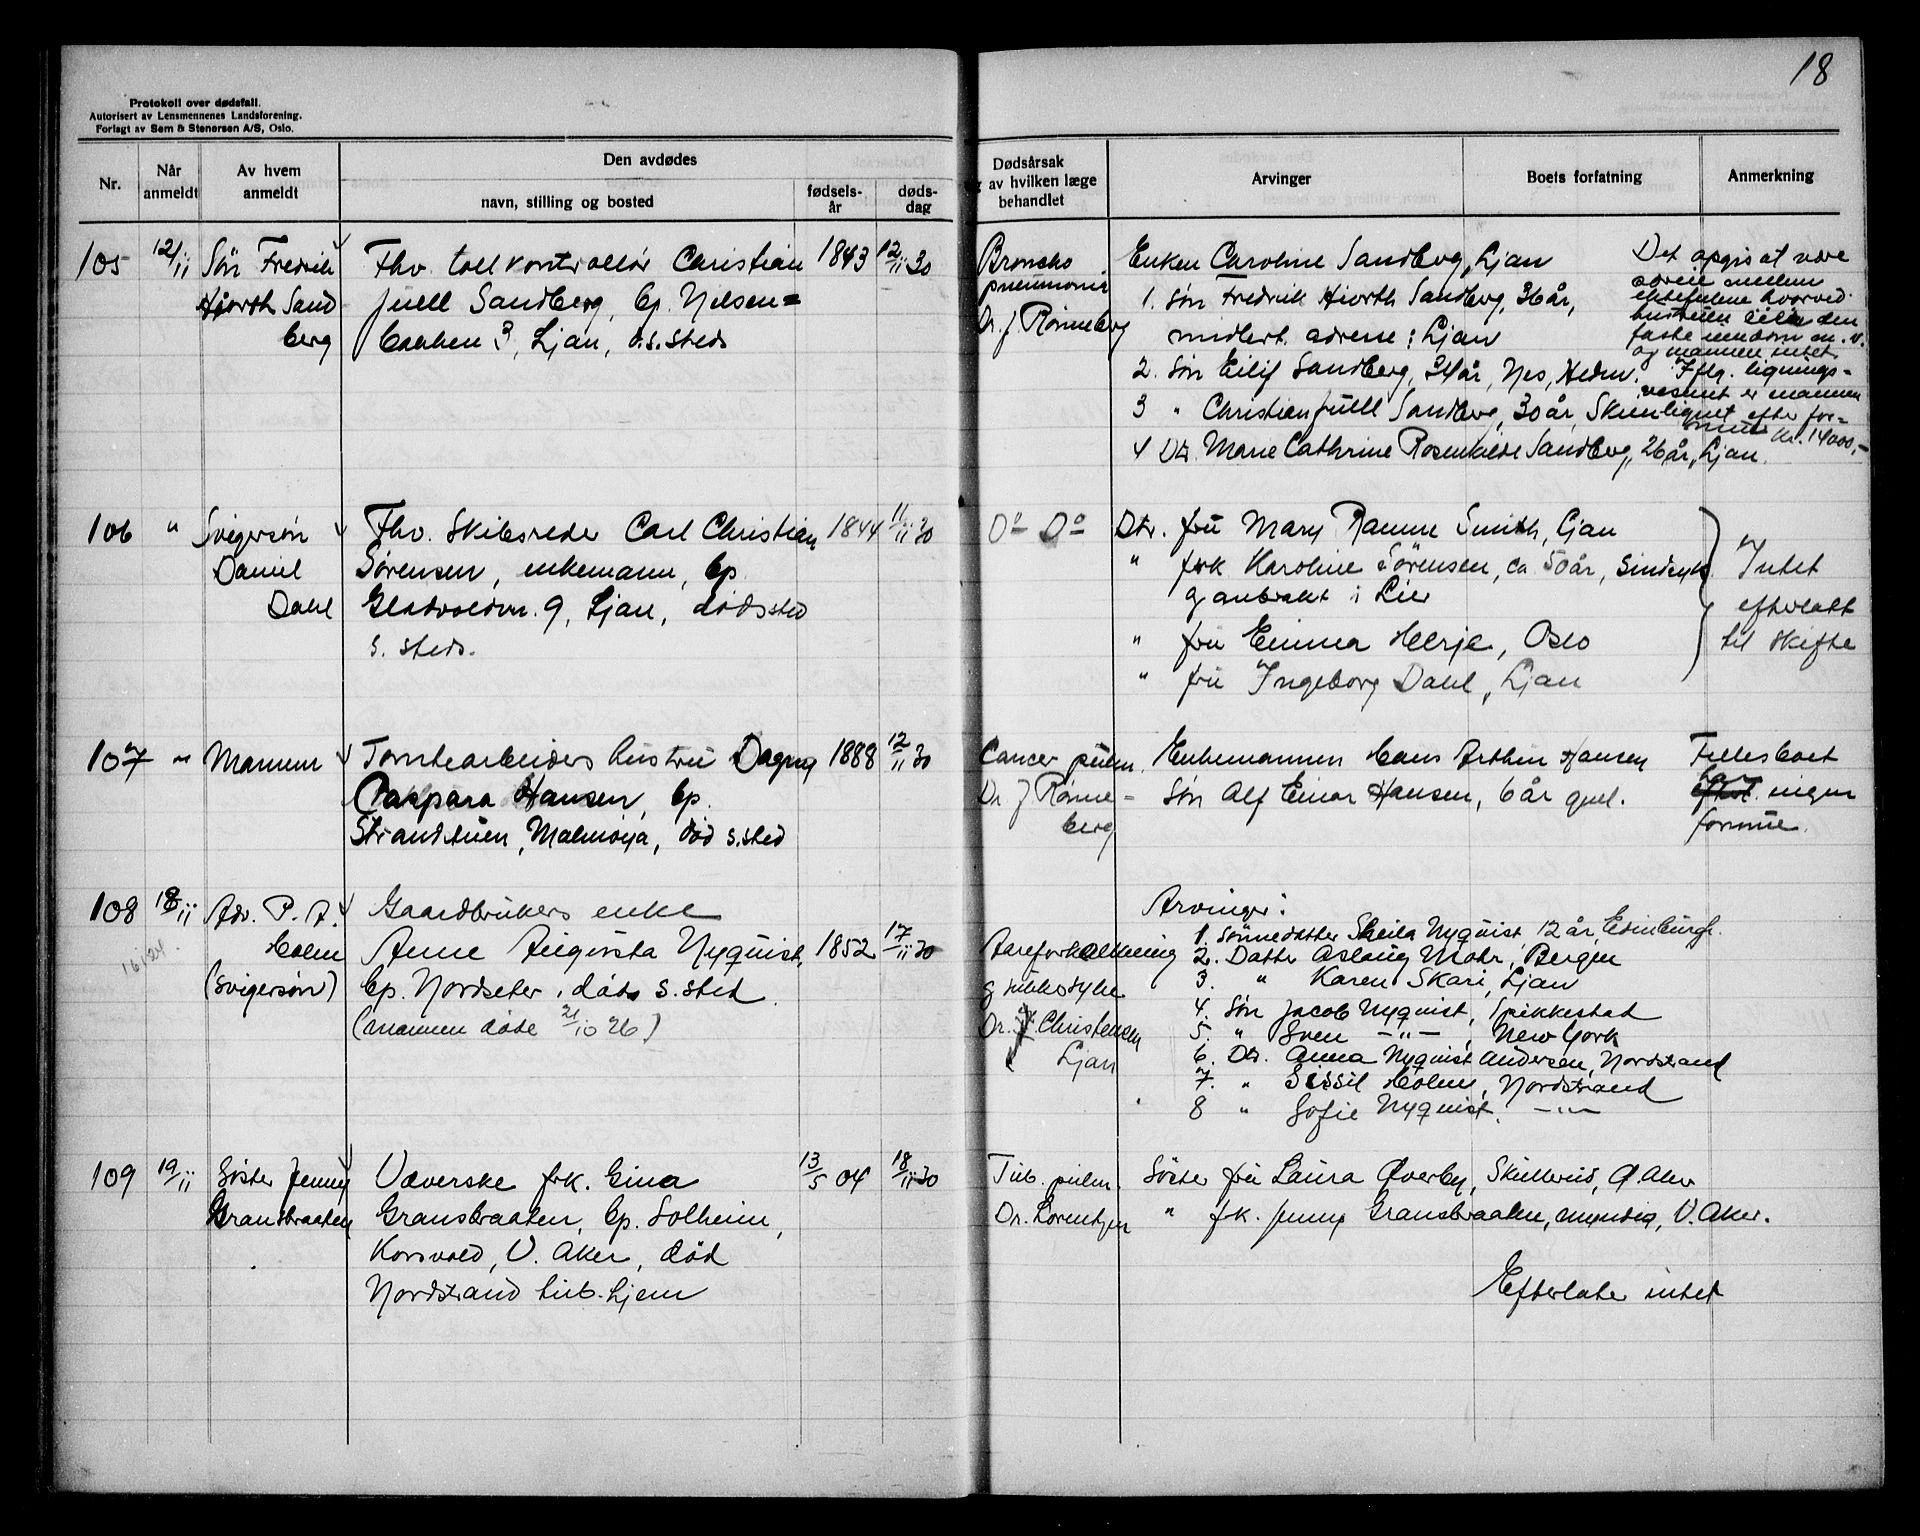 18
Protokoll over dødsfall.
Autorisert av Lensmennenes Landsforening.
Forlagt av Sem & Stenersen A/S, Oslo.
Nr.
Når anmeldt
Av hvem anmeldt
Den avdødes
navn, stilling og bosted
fødsels-år
døds-dag
Dødsårsak
og av hvilken læge
behandlet
Arvinger
Boets forfatning
Anmerkning
105 12/11 Søn Fredrik
Hjorth Sand
berg
Fhv. tollkontrollør Christian 1843 12/11 30
Juell Sandberg, bp. Nilsen=
bakken 3, Ljan, d.s.steds
Broncho
pneumonia
Dr. J. Rønneberg
Enken Caroline Sandberg, Ljan
1. Søn Fredrik Hiorth Sandberg, 36 år,
midlert. adresse: Ljan
2. Søn Eilif Sandberg, 34 år, Nes, Hedm.
3 " Christian Juell Sandberg, 30 år, Ski
4 Dtr. Marie Cathrine Rosenkilde Sandberg, 26 år, Ljan.
Det opgis at være
særeie mellem
ektefellene hvorved
hustruen eier den
faste eiendom m.v.
og mannen intet.
Iflg. lignings=
vesenet er mannen
lignet efter for=
mue kr. 14000,-
106 " Svigersøn
Daniel
Dahl
Fhv. Skibsreder Carl Christian 1844 11/11 30
Sørensen, enkemann, bp.
Gladvoldvn. 9, Ljan, dødssted
s. steds.
Do Do
Dtr. fru Mary Ramm Smith, Ljan
" frk Karoline Sørensen, ca 50 år, Sindsyk
og anbrakt i Lier
" fru Emma Herje, Oslo
" fru Ingeborg Dahl, Ljan
Intet
efterlatt
til skifte
107 " Mannen
Tomtearbeiders hustru Dagny 1888 12/11 30
Caspara Hansen, bp.
Strandstuen, Malmøya, død s.sted
Cancer pulm.
Dr J Rønne-
berg
Enkemannen Hans Arthur Hansen
Søn Alf Einar Hansen, 6 år gml.
Fellesboet
har ingen
formue.
108 18/11 Adv. P. A.
Holm
(svigersøn)
16/24.
Gaardbrukers enke
Anne Augusta Nyquist, 1852 17/11 30
bp. Nordseter, døds s.sted.
(mannen døde 21/10 26)
Aareforkalkning
og sukkersyke
Dr. Christensen
Ljan
Arvinger:
1. Sønnedatter Sheila Nyquist, 12 år, Edinburgh.
2. Datter Aslaug Mohr, Bergen
3. " Karen Skari, Ljan
4. Søn Jacob Nyquist, Spikkestad
5. " Sven -"-, New York
6. Dtr. Anna Nyquist Andersen, Nordstrand
7. " Sissil Holm, Nordstrand
8 " Sofie Nyquist. -"-
109 19/11 Søster Jenny
Gransbraaten
Væverske frk. Gina 13/5 04 18/11 30
Gransbraaten, bp. Solheim,
Korsvold, V. Aker, død
Nordstrand tub.hjem
Tub. pulm.
Dr. Lorentzen
Søster fru Laura Øverby, Skullerud, Ø. Aker
" frk. Jenny Gransbraaten, myndig, V. Aker.
Efterlater intet